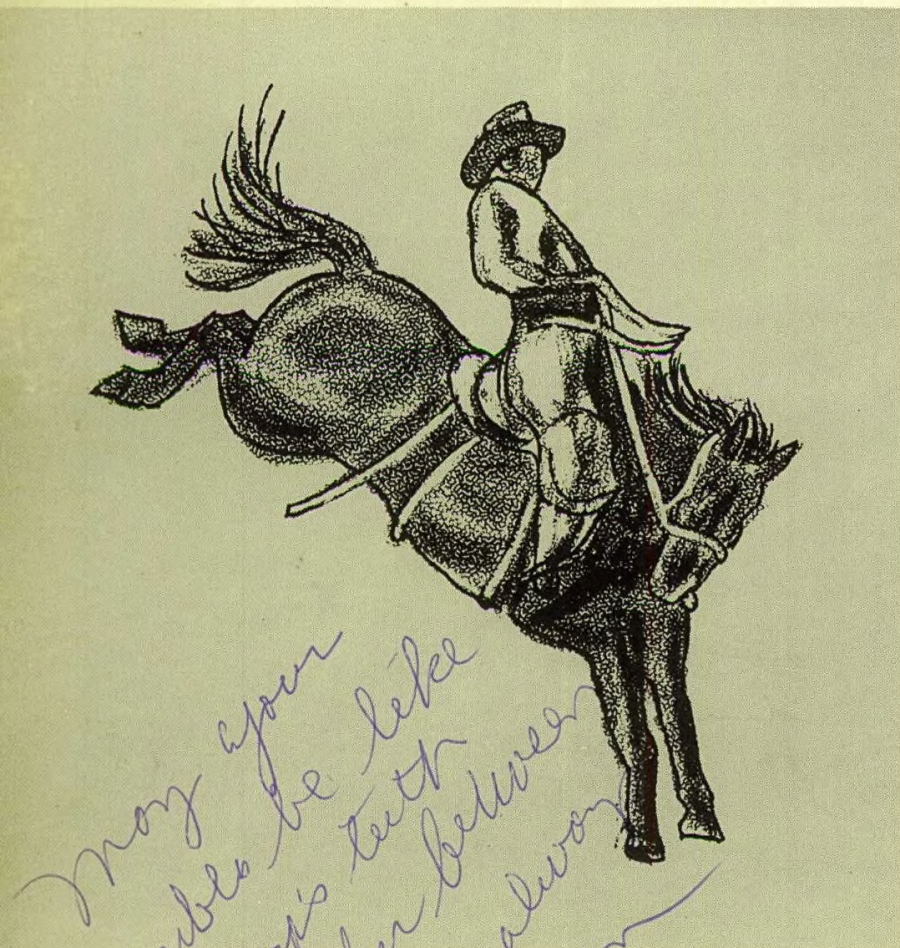 May your
ubles be like
teeth
between
always